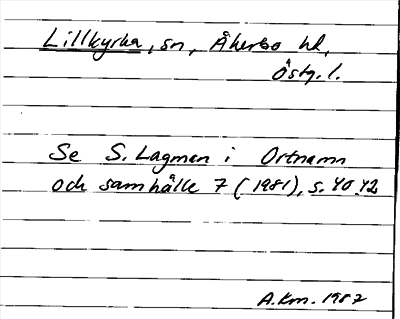 Lillkyrka, sn, Åkerbo hd,
Östg. l.
Se S. Lagman i Ortnamn
och samhälle 7 (1981), s. 40, 42
A.Km. 1982